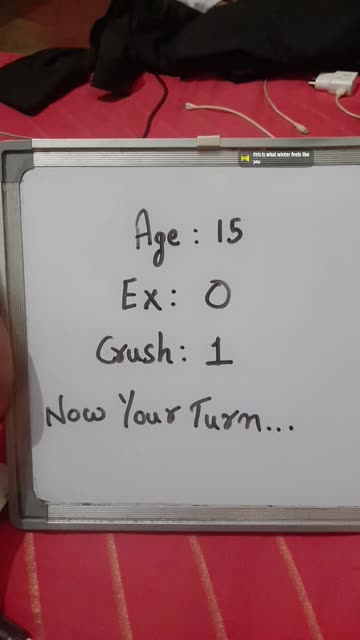 this is what winter feels like
Age : 15
Ex : 0
Crush : 1
Now Your Turn...